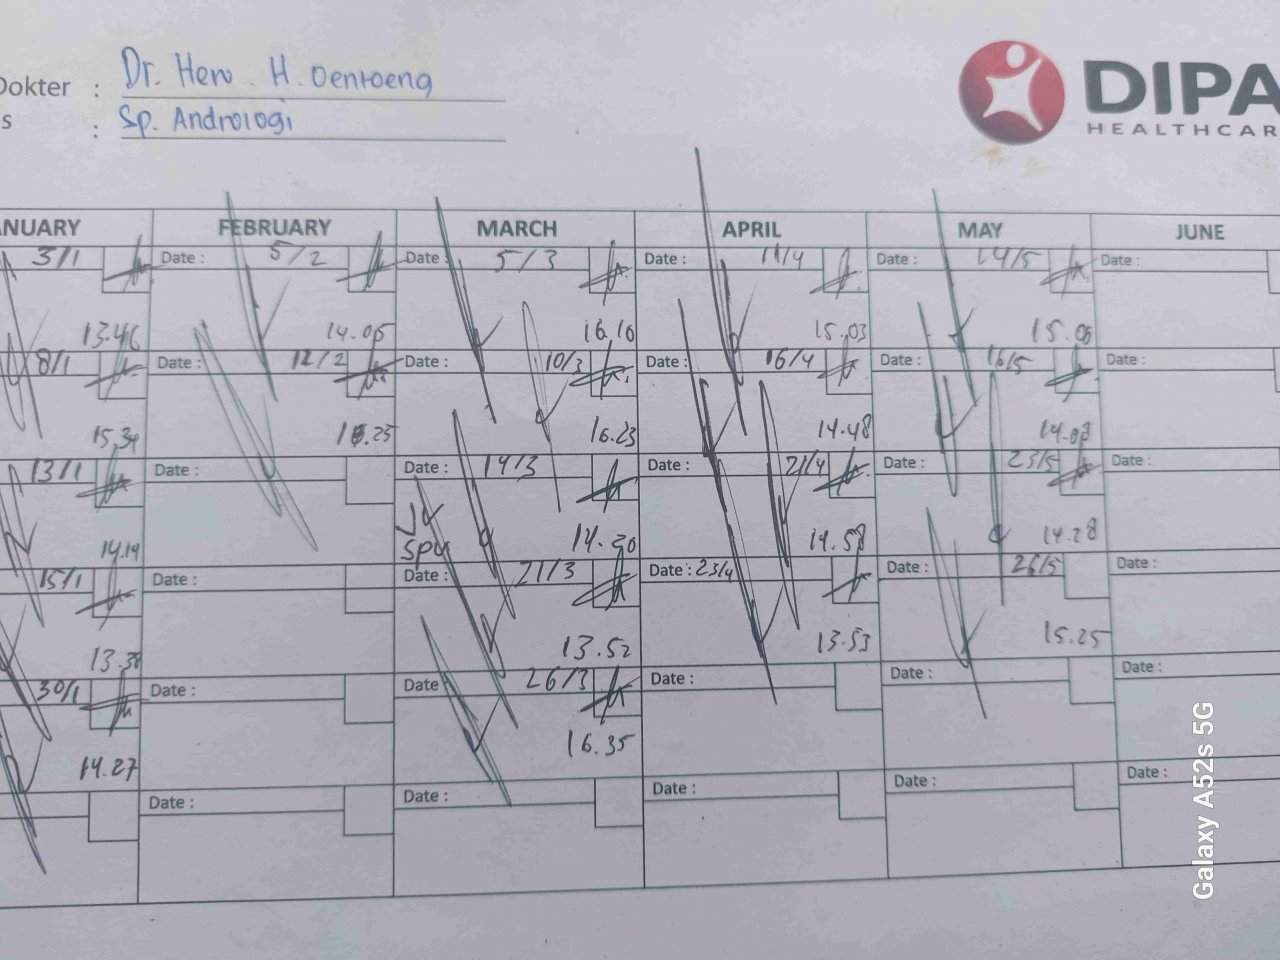 Dokter : Dr. Hero H. Oentoeng
s : Sp. Andrologi
DIPA
HEALTHCAR
NUARY FEBRUARY MARCH APRIL MAY JUNE
3/1 Date : 5/2 Date : 5/3 Date : 11/4 Date : 14/5 Date :
13.46 14.05 16.10 15.03 15.08
8/1 Date : 12/2 Date : 10/3 Date : 16/4 Date : 16/5 Date :
15.34 15.25 16.23 14.48 14.08
13/1 Date : Date : 14/3 Date : 21/4 Date : 23/5 Date :
14.14 SPU 14.20 14.58 14.28
15/1 Date : Date : 21/3 Date : 23/4 Date : 26/5 Date :
13.38 13.52 13.53 15.25
30/1 Date : Date 26/3 Date : Date : Date :
14.27 16.35
Date : Date : Date : Date : Date :
Galaxy A52s 5G